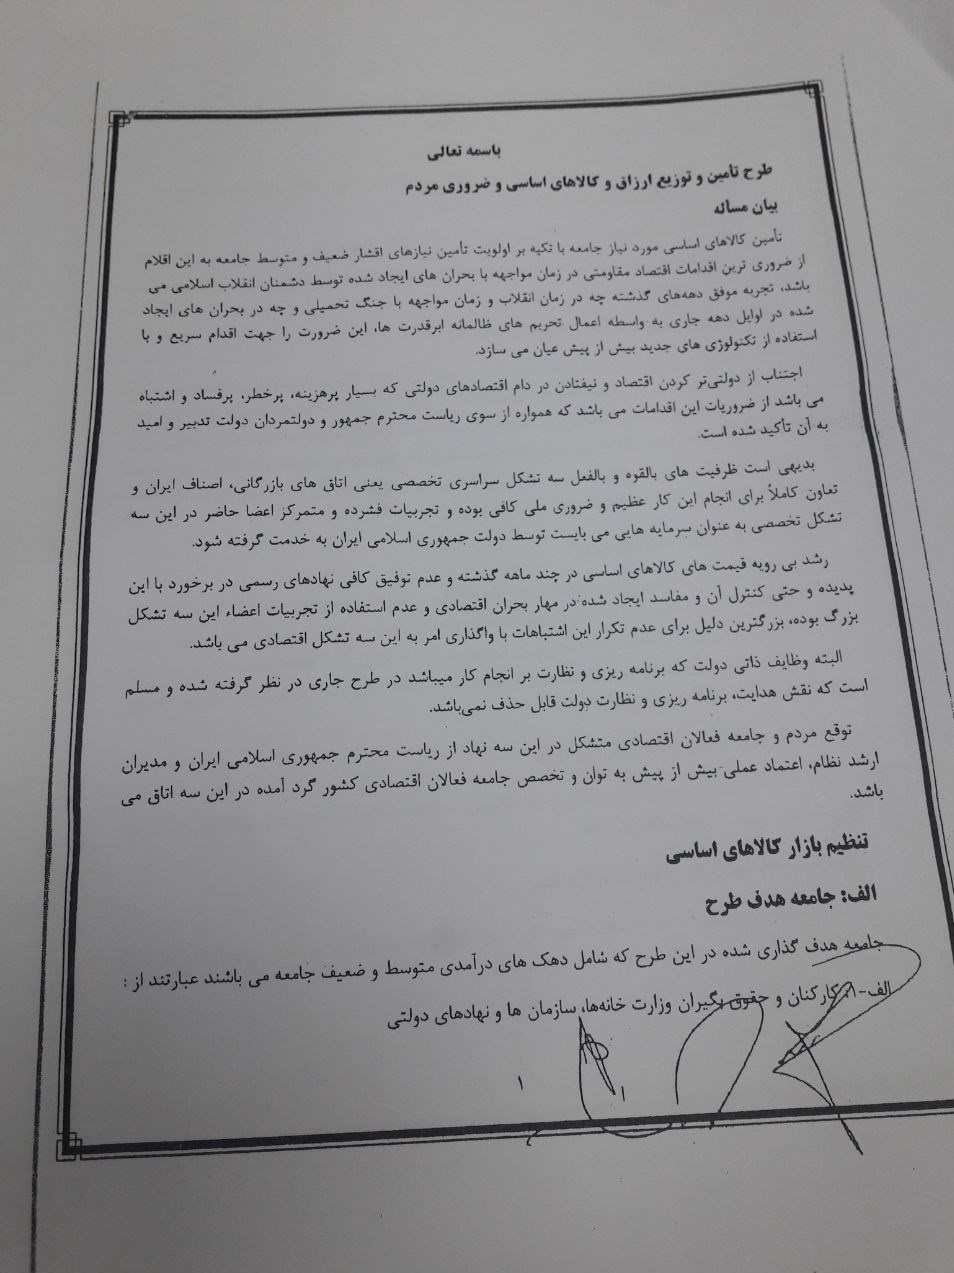 باسمه تعالی
طرح تأمین و توزیع ارزاق و کالاهای اساسی و ضروری مردم
بیان مسأله
تأمین کالاهای اساسی مورد نیاز جامعه با تکیه بر اولویت تأمین نیازهای اقشار ضعیف و متوسط جامعه به این اقلام
از ضروری ترین اقدامات اقتصاد مقاومتی در زمان مواجهه با بحران های ایجاد شده توسط دشمنان انقلاب اسلامی می
باشد، تجربه موفق دهه‌های گذشته چه در زمان انقلاب و زمان مواجهه با جنگ تحمیلی و چه در بحران های ایجاد
شده در اوایل دهه جاری به واسطه اعمال تحریم های ظالمانه ابرقدرت ها، این ضرورت را جهت اقدام سریع و با
استفاده از تکنولوژی های جدید بیش از پیش عیان می سازد.
اجتناب از دولتی‌تر کردن اقتصاد و نیفتادن در دام اقتصادهای دولتی که بسیار پرهزینه، پرخطر، پرفساد و اشتباه
می باشد از ضروریات این اقدامات می باشد که همواره از سوی ریاست محترم جمهور و دولتمردان دولت تدبیر و امید
به آن تأکید شده است.
بدیهی است ظرفیت های بالقوه و بالفعل سه تشکل سراسری تخصصی یعنی اتاق های بازرگانی، اصناف ایران و
تعاون کاملاً برای انجام این کار عظیم و ضروری ملی کافی بوده و تجربیات فشرده و متمرکز اعضا حاضر در این سه
تشکل تخصصی به عنوان سرمایه هایی می بایست توسط دولت جمهوری اسلامی ایران به خدمت گرفته شود.
رشد بی رویه قیمت های کالاهای اساسی در چند ماهه گذشته و عدم توفیق کافی نهادهای رسمی در برخورد با این
پدیده و حتی کنترل آن و مفاسد ایجاد شده در مهار بحران اقتصادی و عدم استفاده از تجربیات اعضاء این سه تشکل
بزرگ بوده، بزرگترین دلیل برای عدم تکرار این اشتباهات با واگذاری امر به این سه تشکل اقتصادی می باشد.
البته وظایف ذاتی دولت که برنامه ریزی و نظارت بر انجام کار میباشد در طرح جاری در نظر گرفته شده و مسلم
است که نقش هدایت، برنامه ریزی و نظارت دولت قابل حذف نمی‌باشد.
توقع مردم و جامعه فعالان اقتصادی متشکل در این سه نهاد از ریاست محترم جمهوری اسلامی ایران و مدیران
ارشد نظام، اعتماد عملی بیش از پیش به توان و تخصص جامعه فعالان اقتصادی کشور گرد آمده در این سه اتاق می
باشد.
تنظیم بازار کالاهای اساسی
الف: جامعه هدف طرح
جامعه هدف گذاری شده در این طرح که شامل دهک های درآمدی متوسط و ضعیف جامعه می باشند عبارتند از :
الف-۱. کارکنان و حقوق بگیران وزارت خانه‌ها، سازمان ها و نهادهای دولتی
۱
۱